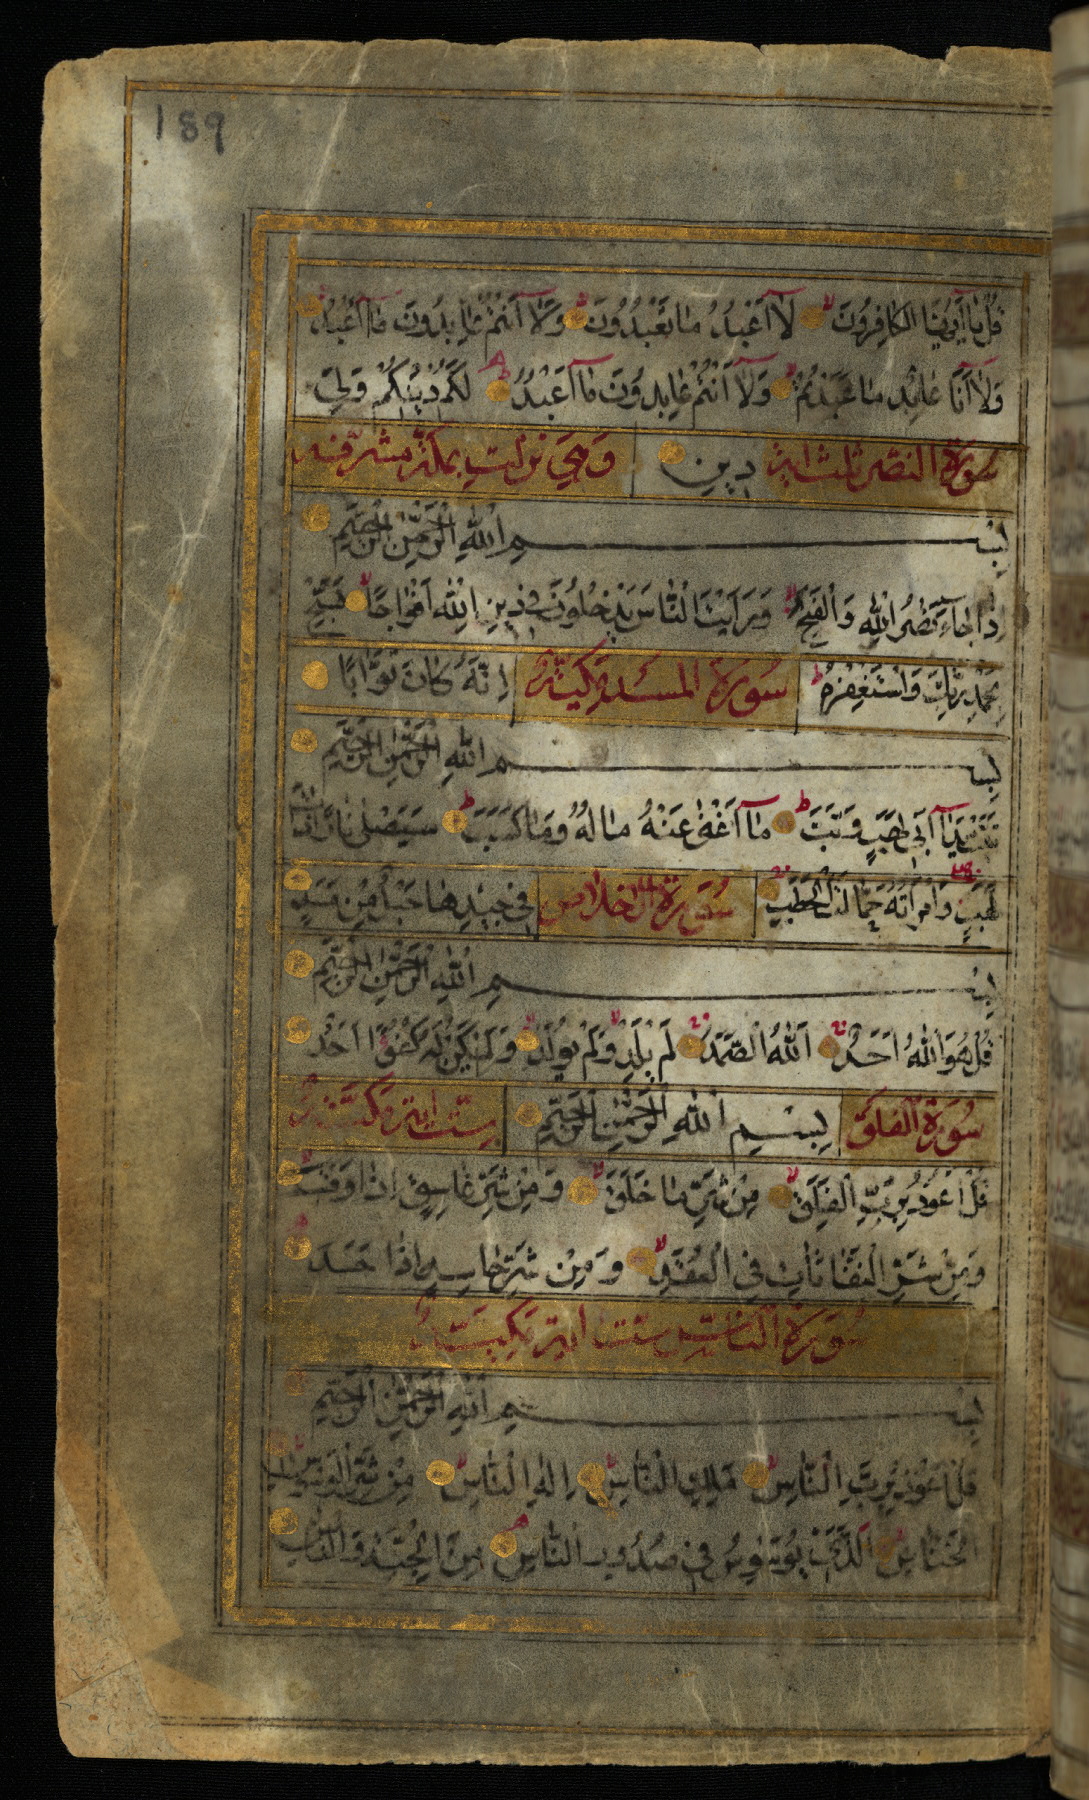 189
قُلْ يَا أَيُّهَا الْكَافِرُونَ لَا أَعْبُدُ مَا تَعْبُدُونَ وَلَا أَنْتُمْ عَابِدُونَ مَا أَعْبُدُ
وَلَا أَنَا عَابِدٌ مَا عَبَدْتُمْ وَلَا أَنْتُمْ عَابِدُونَ مَا أَعْبُدُ لَكُمْ دِينُكُمْ وَلِيَ
سُورَةُ النصر ثلث اية دِينِ وَهِيَ نزلت بمكة مشرفه
بِسْمِ اللهِ الرَّحْمٰنِ الرَّحِيمِ
إِذَا جَاءَ نَصْرُ اللهِ وَالْفَتْحُ وَرَأَيْتَ النَّاسَ يَدْخُلُونَ فِي دِينِ اللهِ أَفْوَاجًا فَسَبِّحْ
بِحَمْدِ رَبِّكَ وَاسْتَغْفِرْهُ سُورَةُ المسد مكية إِنَّهُ كَانَ تَوَّابًا
بِسْمِ اللهِ الرَّحْمٰنِ الرَّحِيمِ
تَبَّتْ يَدَا أَبِي لَهَبٍ وَتَبَّ مَا أَغْنَى عَنْهُ مَالُهُ وَمَا كَسَبَ سَيَصْلَى نَارًا ذَاتَ
لَهَبٍ وَامْرَأَتُهُ حَمَّالَةَ الْحَطَبِ سُورَةُ الاخلاص فِي جِيدِهَا حَبْلٌ مِنْ مَسَدٍ
بِسْمِ اللهِ الرَّحْمٰنِ الرَّحِيمِ
قُلْ هُوَ اللهُ أَحَدٌ اللهُ الصَّمَدُ لَمْ يَلِدْ وَلَمْ يُولَدْ وَلَمْ يَكُنْ لَهُ كُفُوًا أَحَدٌ
سُورَةُ الفلق بِسْمِ اللهِ الرَّحْمٰنِ الرَّحِيمِ ست اية مكية
قُلْ أَعُوذُ بِرَبِّ الْفَلَقِ مِنْ شَرِّ مَا خَلَقَ وَمِنْ شَرِّ غَاسِقٍ إِذَا وَقَبَ
وَمِنْ شَرِّ النَّفَّاثَاتِ فِي الْعُقَدِ وَمِنْ شَرِّ حَاسِدٍ إِذَا حَسَدَ
سُورَةُ الناس ست اية مكية
بِسْمِ اللهِ الرَّحْمٰنِ الرَّحِيمِ
قُلْ أَعُوذُ بِرَبِّ النَّاسِ مَلِكِ النَّاسِ إِلٰهِ النَّاسِ مِنْ شَرِّ الْوَسْوَاسِ
الْخَنَّاسِ الَّذِي يُوَسْوِسُ فِي صُدُورِ النَّاسِ مِنَ الْجِنَّةِ وَالنَّاسِ